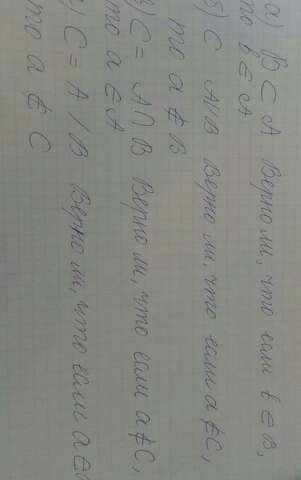 а) B ⊂ A Верно ли, что если b ∈ B,
то b ∈ A
б) C A\B Верно ли, что если a ∉ C,
то a ∉ B
) C = A ∩ B Верно ли, что если a ∉ C,
то a ∈ A
) C = A \ B Верно ли, что если a ∈
то a ∉ C